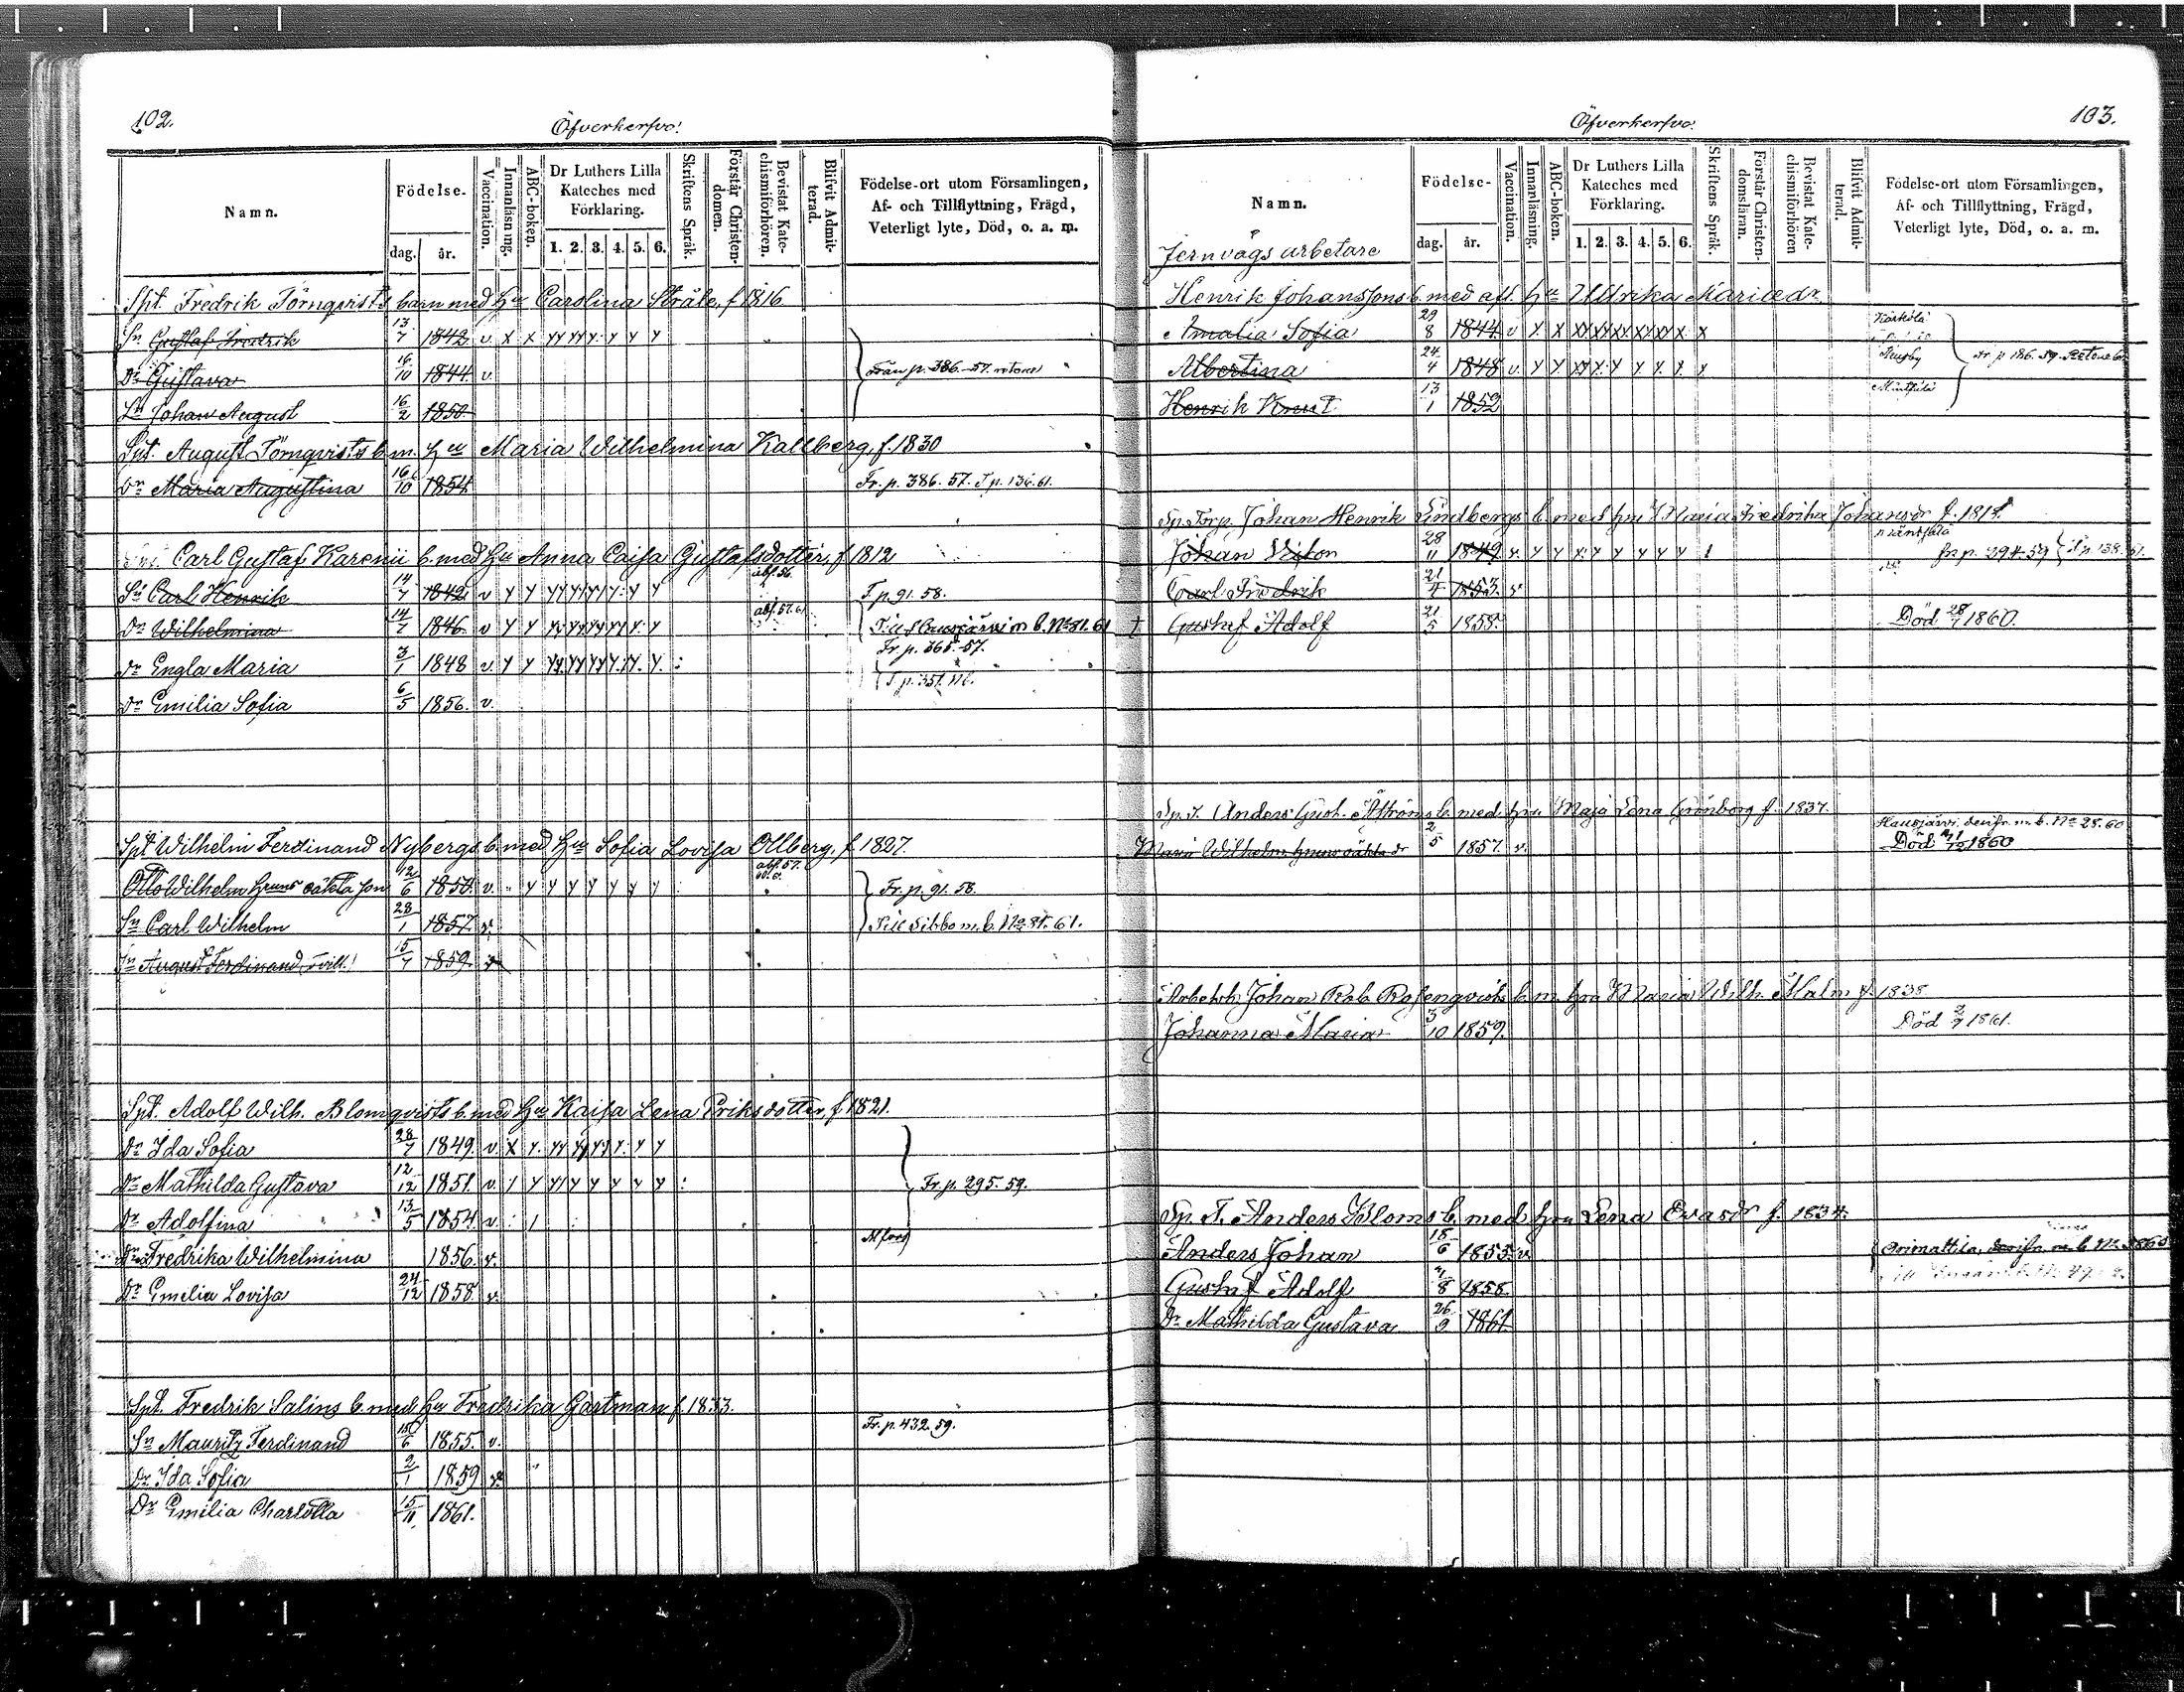 102.
Öfverkersvo.
Namn.
Födelse.
dag.
år.
Vaccination.
Innanläsning.
ABC-boken.
Dr Luthers Lilla Kateches med Förklaring.
1. 2. 3. 4. 5. 6.
Skriftens Språk.
Förstår Christendomen.
Bevistat Katechismiförhören.
Blifvit Admitterad.
Födelse-ort utom Församlingen, Af- och Tillflyttning, Frägd, Veterligt lyte, Död, o. a. m.
Spt. Fredrik Törnqvists barn med Hu Carolina Stråle, f 1816
Sn Gustaf Fredrik 13/7 1842 v x x
Dr Gustava 16/10 1844 v. Från p. 386.-57.
Sn Johan August 16/2 1850
Spt. August Törnqvists b. m. Hu Maria Wilhelmina Kallberg, f. 1830
Dr Maria Augustina 16/10 1854 Fr. p. 386. 57. T p. 136. 61.
Carl Gustaf Karenii b. med Hu Anna Caisa Gustafsdotter, f 1812
abf. 56.
Sn Carl Henrik 14/7 1842 v y y T. p. 91. 58.
Dr Wilhelmina 14/7 1846 v y y abf. 57. Till Hausjärvi m. b. No 81. 61
Fr. p. 365.-57.
Dr Engla Maria 3/1 1848 v. y y T. p. 351.
Dr Emilia Sofia 6/5 1856. v.
Spt Wilhelm Ferdinand Nybergs b. med Hu Sofia Lovisa Ollberg, f 1827.
abf. 57.
Otto Wilhelm Hruns oäkta son 12/6 1850. v. y y y y y y y Fr. p. 91. 58.
Sn Carl Wilhelm 28/1 1857. v. Till Sibbo m. b. No 81. 61.
Sn August Ferdinand, tvill. 15/7 1859. v
Spt. Adolf Wilh. Blomqvists b. med Hu Kaisa Lena Eriksdotter, f 1821.
Dr Ida Sofia 28/7 1849. v. x y.
Dr Mathilda Gustava 12/12 1851. v. Fr. p. 295. 59.
Dr Adolfina 13/5 1854 v.
Dr Fredrika Wilhelmina 1856. v.
Dr Emelia Lovisa 24/12 1858. v.
Spt. Fredrik Salins b. med Hu Fredrika Gartman f. 1833.
Fr. p. 432. 59.
Sn Mauritz Ferdinand 15/6 1855. v.
Dr Ida Sofia 2/1 1859 v.
Dr Emilia Charlotta 15/11 1861.
103.
Öfverkersvo.
Namn.
Födelse-
dag.
år.
Vaccination.
Innanläsning.
ABC-boken.
Dr Luthers Lilla Kateches med Förklaring.
1. 2. 3. 4. 5. 6.
Skriftens Språk.
Förstår Christendomsläran.
Bevistat Katechismiförhören
Blifvit Admitterad.
Födelse-ort utom Församlingen, Af- och Tillflyttning, Frägd, Veterligt lyte, Död, o. a. m.
Jernvägs arbetare
Henrik Johanssons b. med afl. Hu Ulrika Mariædr
Amalia Sofia 29/8 1844. v x x Kärkölä
Albertina 24/4 1848 v. y y fr p 186. 59.
Henrik Knut 13/1 1852 Mäntsälä
Sp. Torp. Johan Henrik Lindbergs b. med hu Maria Fredrika Johansdr f. 1818
Mäntsälä
Johan Viktor 28/11 1849 v. y y fr p. 394-59 T. p. 138. 61.
Carl Fredrik 21/4 1853. v
† Gustaf Adolf 21/5 1858. Död 28/7 1860.
Sp. T. Anders Gust. Åströms b. med. hu Maja Lena Grönborg f. 1837.
Hausjärvi. m. b. No 28. 60
Maria Wilhelm. hruns oäkta dr 2/5 1857. v. Död 1860
Arbetk. Johan Rob. Rosenqvists b. m. hu Maria Wilh. Malm f. 1838
Johanna Maria 3/10 1859. Död 1861.
Sp. T. Anders Bloms b. med hu Lena Evasdr f. 1834.
Anders Johan 18/6 1855. v. Orimattila,
Gustaf Adolf 8 1858.
Dr Mathilda Gustava 26/9 1861.